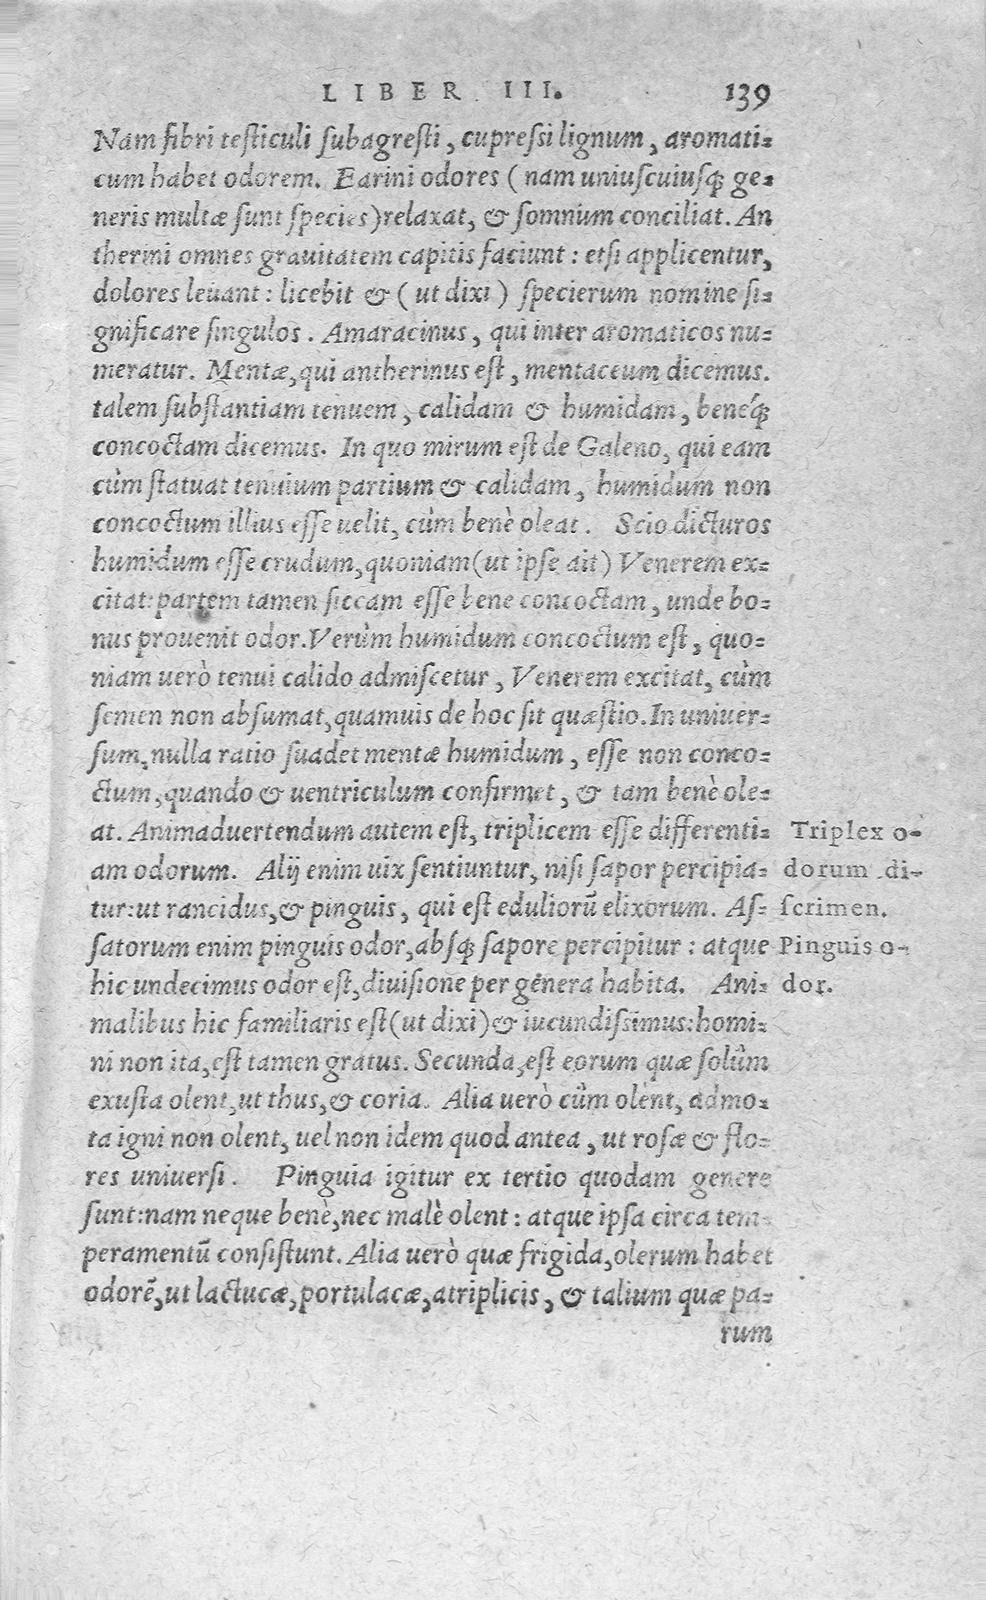 LIBER III. 139
Nam fibri teſticuli ſubagreſti, cupreſsi lignum, aromati=
cum habet odorem. Earini odores (nam uniuſcuiuſq; ge=
neris multæ ſunt ſpecies) relaxat, & ſomnium conciliat. An
therini omnes grauitatem capitis faciunt: etſi applicentur,
dolores leuant: licebit & (ut dixi) ſpecierum nomine ſi=
gnificare ſingulos. Amaracinus, qui inter aromaticos nu=
meratur. Mentæ, qui antherinus eſt, mentaceum dicemus.
talem ſubſtantiam tenuem, calidam & humidam, benéq;
concoctam dicemus. In quo mirum eſt de Galeno, qui eam
cùm ſtatuat tenuium partium & calidam, humidum non
concoctum illius eſſe uelit, cùm benè oleat. Scio dicturos
humidum eſſe crudum, quoniam (ut ipſe ait) Venerem ex=
citat: partem tamen ſiccam eſſe bene concoctam, unde bo=
nus prouenit odor. Verùm humidum concoctum eſt, quo=
niam uerò tenui calido admiſcetur, Venerem excitat, cùm
ſemen non abſumat, quamuis de hoc ſit quæſtio. In uniuer=
ſum, nulla ratio ſuadet mentæ humidum, eſſe non conco=
ctum, quando & uentriculum confirmet, & tam benè ole=
at. Animaduertendum autem eſt, triplicem eſſe differenti= Triplex o-
am odorum. Alij enim uix ſentiuntur, niſi ſapor percipia= dorum di-
tur: ut rancidus, & pinguis, qui eſt eduliorū elixorum. Aſ= ſcrimen.
ſatorum enim pinguis odor, abſq; ſapore percipitur: atque Pinguis o-
hic undecimus odor eſt, diuiſione per genera habita. Ani= dor.
malibus hic familiaris eſt (ut dixi) & iucundiſsimus: homi=
ni non ita, eſt tamen gratus. Secunda, eſt eorum quæ ſolùm
exuſta olent, ut thus, & coria. Alia uerò cùm olent, admo=
ta igni non olent, uel non idem quod antea, ut roſæ & flo=
res uniuerſi. Pinguia igitur ex tertio quodam genere
ſunt: nam neque benè, nec malè olent: atque ipſa circa tem=
peramentū conſiſtunt. Alia uerò quæ frigida, olerum habet
odorē, ut lactucæ, portulacæ, atriplicis, & talium quæ pa=
rum